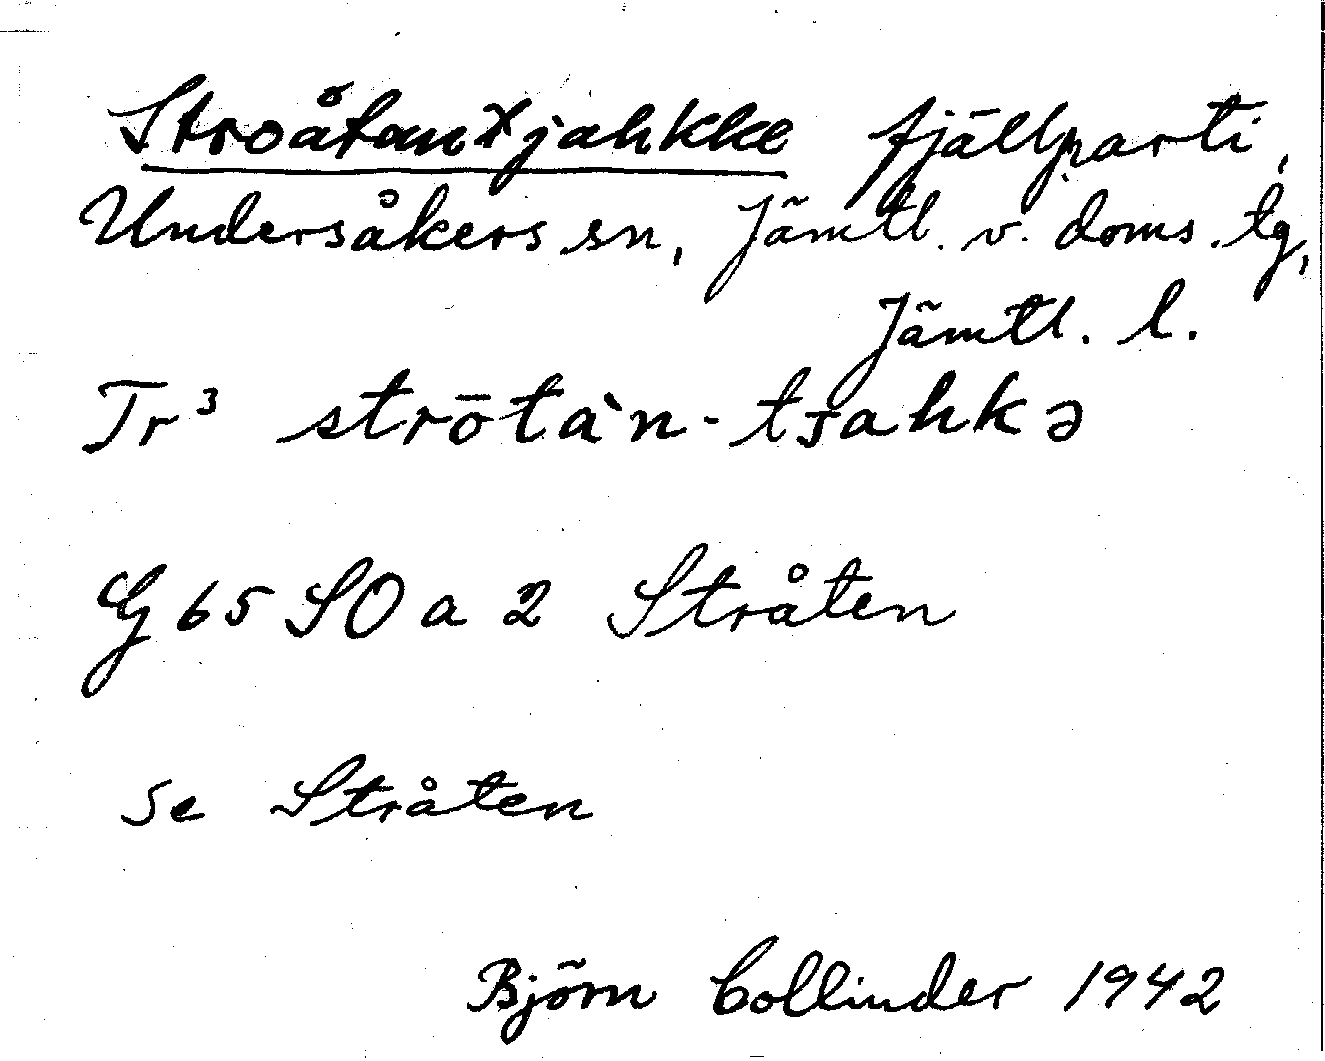 Stroåtanxjahkke fjällparti,
Undersåkers sn, Jämtl. v. doms. tg,
Jämtl. l.
Tr³ strōtàn-tjahkə
G 65 SO a 2 Stråten
Se Stråten
Björn Collinder 1942